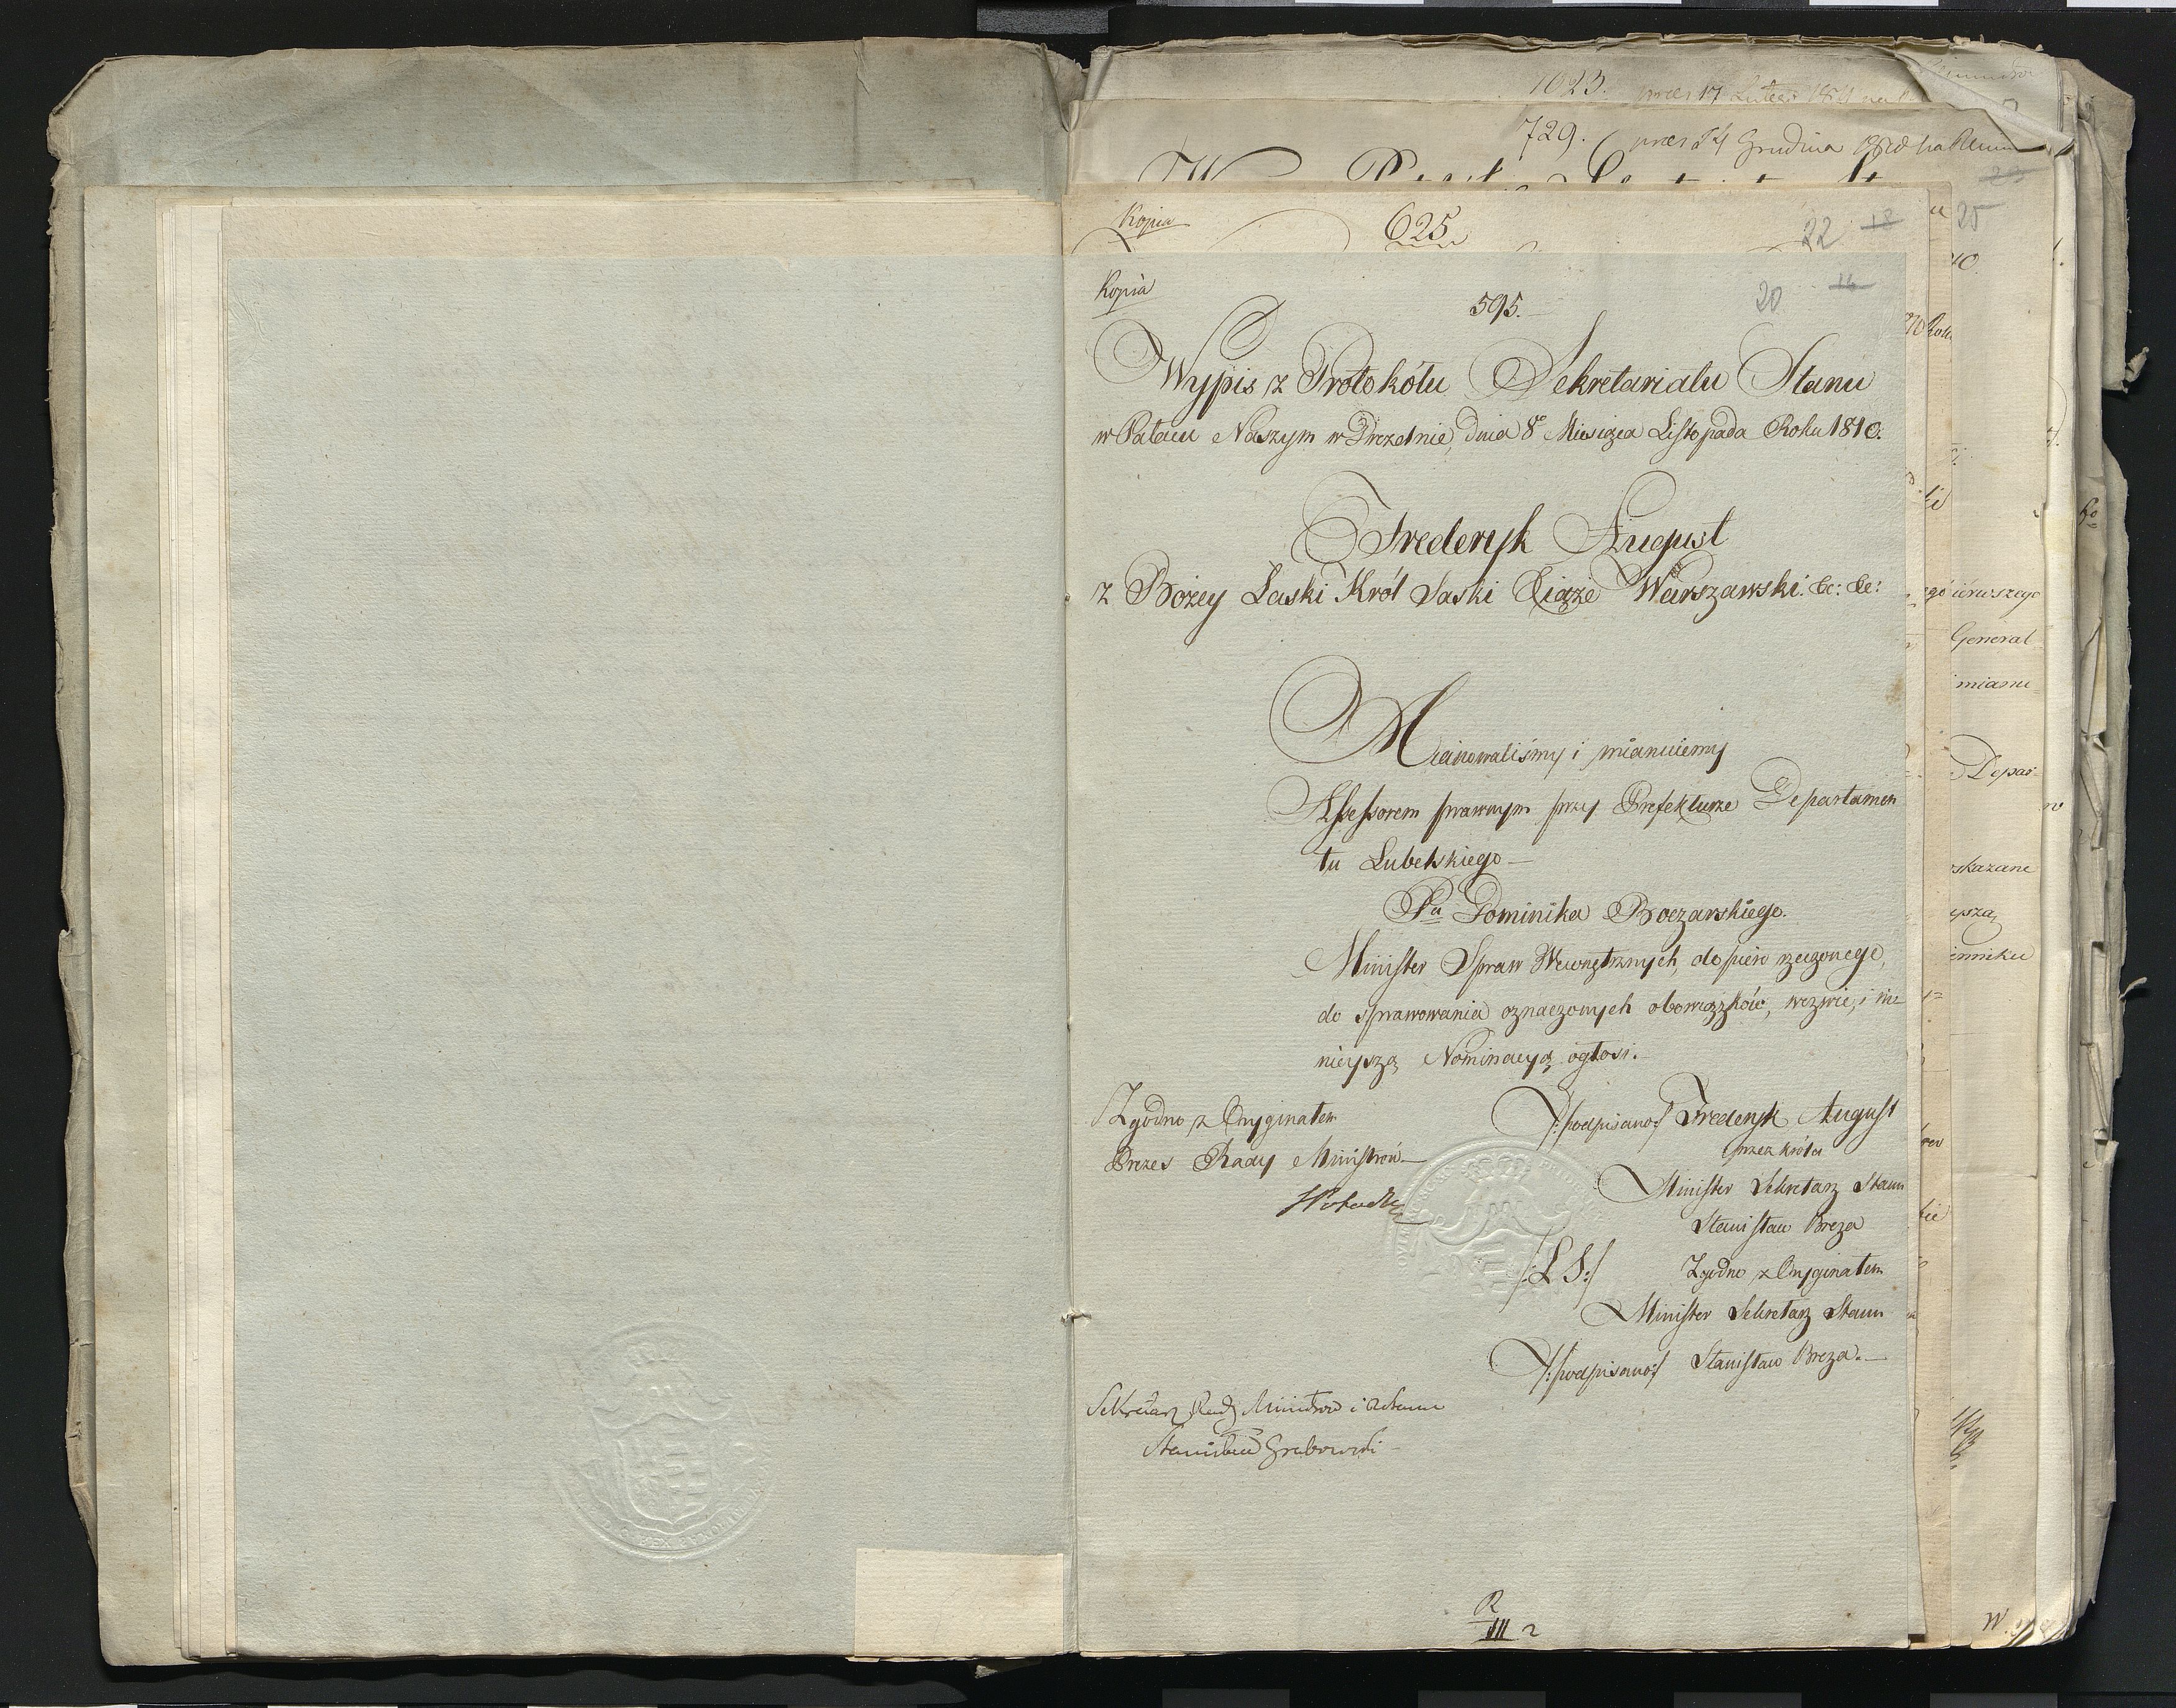 1023.
729.
Kopia
625
22 12
25
Kopia
595.
20 14
Wypis z Protokółu Sekretariatu Stanu
w Pałacu Naszym w Dreźnie, dnia 8 Miesiąca Listopada Roku 1810.
Frederyk August
z Bożey Łaski Król Saski Xiąże Warszawski. &c: &c:
Mianowaliśmy i mianuiemy
Assessorem prawnym przy Prefekturze Departamen
tu Lubelskiego —
Pa Dominika Boczarskiego.
Minister Spraw Wewnętrznych, dopiero rzeczonego,
do sprawowania oznaczonych obowiązków, wezwie, i ni
nieyszą Nominacyą ogłosi.—
Zgodno z Oryginałem
Prezes Rady Ministrów—
/:podpisano:/ Frederyk August
przez Króla
Minister Sekretarz Stanu
Stanisław Breza
/:L.S:/ Zgodno z Oryginałem
Minister Sekretarz Stanu
/:podpisano:/ Stanisław Breza.—
Sekretarz Rady Ministrów i Stanu
Stanisław Grabowski
ierwszego
General
mianu=
Depar=
skazane
R
III 2